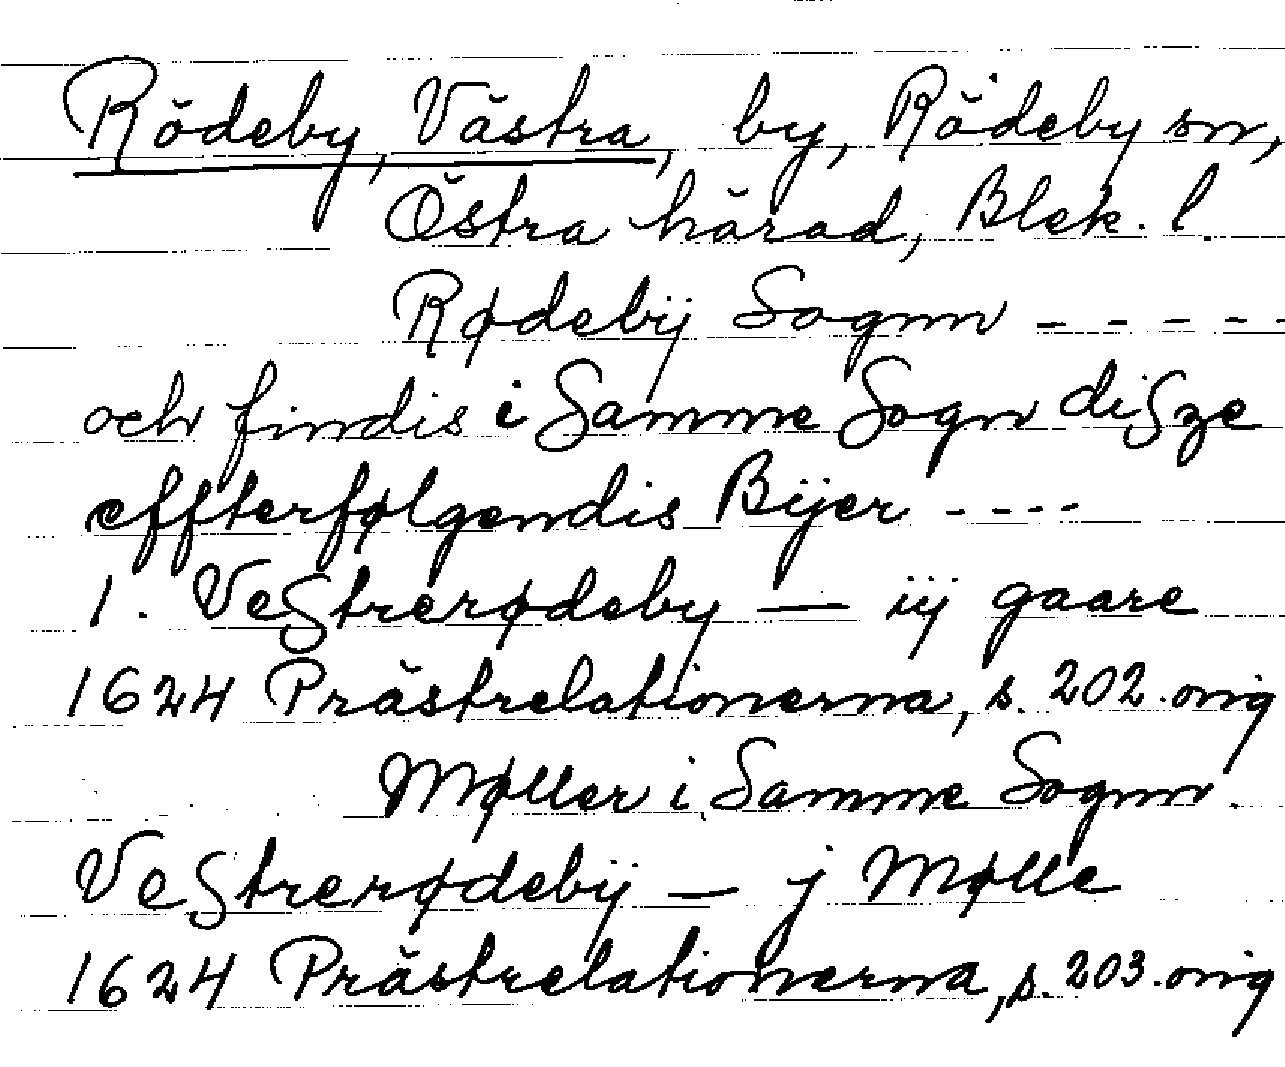 Rödeby, Västra, by, Rödeby sn,
Östra härad, Blek. l.
Rødebÿ Sognn - - - - -
och findis i Samme Sogn diSze
effterfølgendis Bÿer - - - -
1. VeStrerødeby — iij gaare
1624 Prästrelationerna, s. 202. orig
Møller i Samme Sognn.
VeStrerødebÿ — j Mølle
1624 Prästrelationerna, s. 203. orig